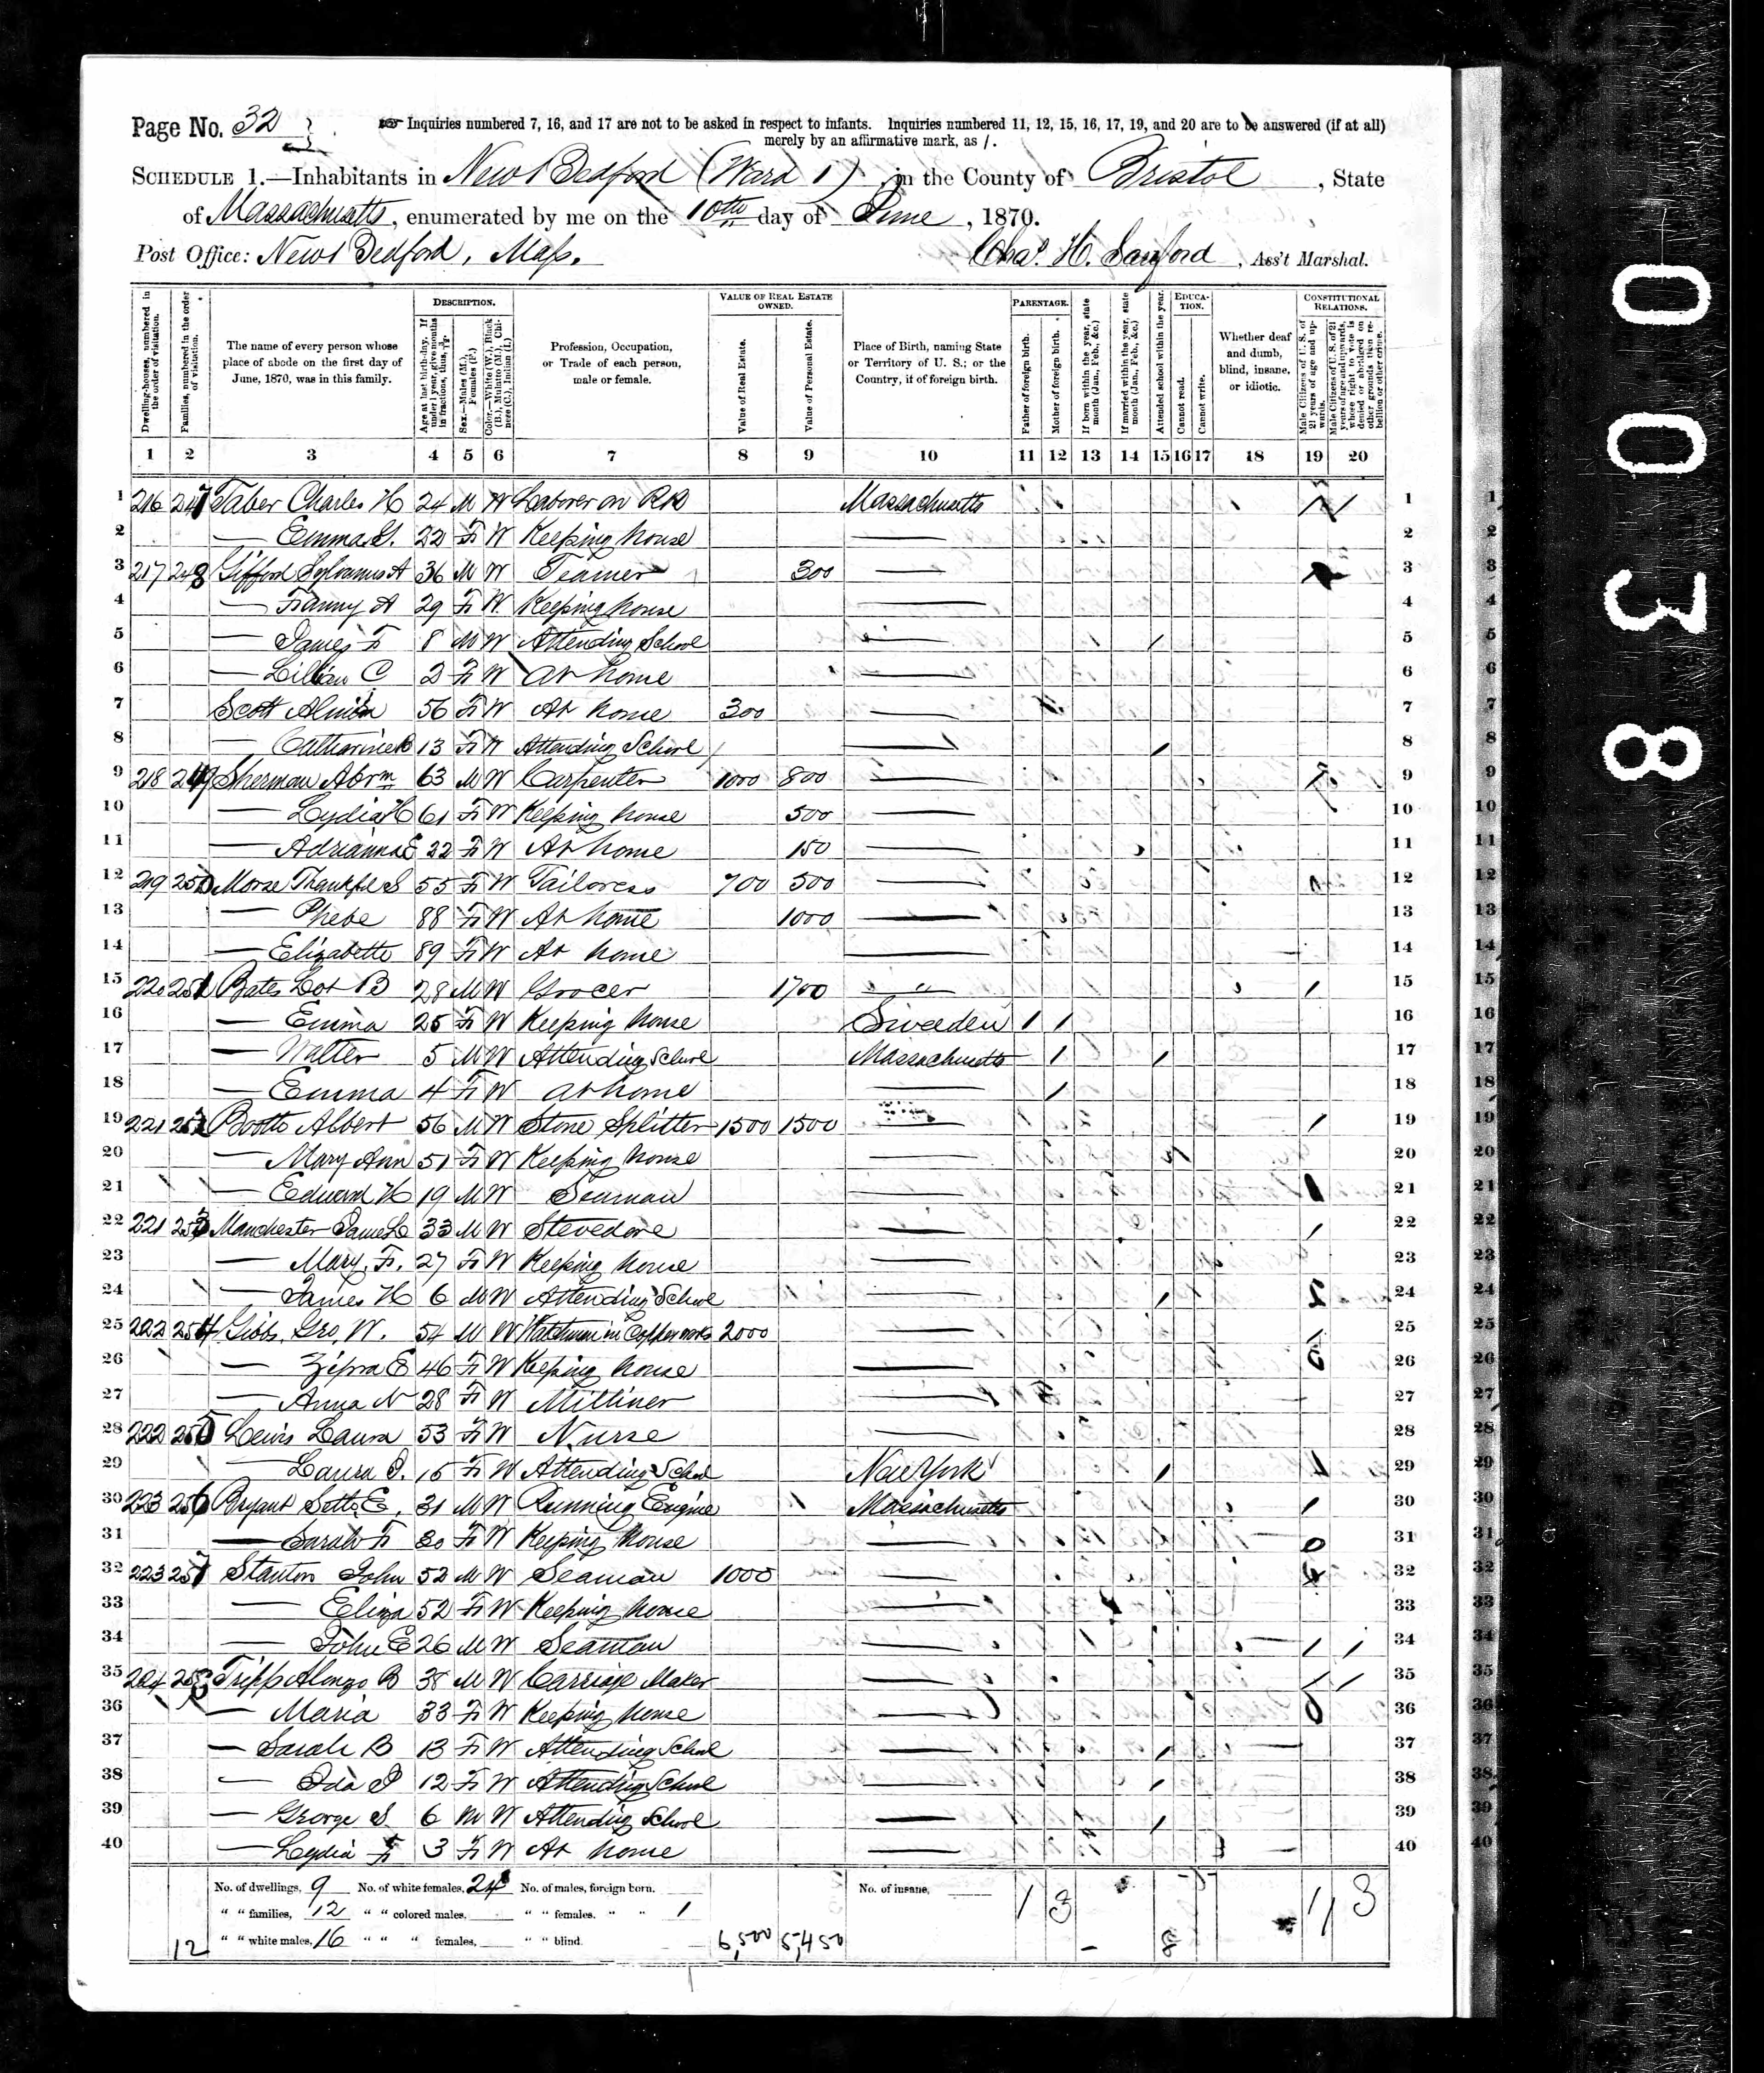 Page No. 32 Inquiries numbered 7, 16, and 17 are not to be asked in respect to infants. Inquiries numbered 11, 12, 15, 16, 17, 19, and 20 are to be answered (if at all)
merely by an affirmative mark, as /.
SCHEDULE 1.—Inhabitants in New Bedford (Ward 1), in the County of Bristol, State
of Massachusetts, enumerated by me on the 10th day of June, 1870.
Post Office: New Bedford, Mass. Chas. H. Sanford, Ass't Marshal.
Dwelling-houses, numbered in the order of visitation.
Families, numbered in the order of visitation.
The name of every person whose place of abode on the first day of June, 1870, was in this family.
DESCRIPTION.
Age at last birth-day. If under 1 year, give months in fractions, thus,
Sex.—Males (M.), Females (F.)
Color.—White (W.), Black (B.), Mulatto (M.), Chinese (C.), Indian (I.)
Profession, Occupation, or Trade of each person, male or female.
VALUE OF REAL ESTATE OWNED.
Value of Real Estate.
Value of Personal Estate.
Place of Birth, naming State or Territory of U. S.; or the Country, if of foreign birth.
PARENTAGE.
Father of foreign birth.
Mother of foreign birth.
If born within the year, state month (Jan., Feb., &c.)
If married within the year, state month (Jan., Feb., &c.)
EDUCATION.
Attended school within the year.
Cannot read.
Cannot write.
Whether deaf and dumb, blind, insane, or idiotic.
CONSTITUTIONAL RELATIONS.
Male Citizens of U. S. of 21 years of age and upwards.
Male Citizens of U. S. of 21 years of age and upwards, whose right to vote is denied or abridged on other grounds than rebellion or other crime.
1 2 3 4 5 6 7 8 9 10 11 12 13 14 15 16 17 18 19 20
1 216 247 Taber Charles H 24 M W Laborer on RR Massachusetts 1
2 — Emma S. 22 F W Keeping house — 2
3 217 248 Gifford Sylvanus A 36 M W Teamer 300 — 3
4 — Fanny A 29 F W Keeping house — 4
5 — James F 8 M W Attending School — / 5
6 — Lillian C 2 F W At home — 6
7 Scott Almira 56 F W At home 300 — 7
8 — Catharine B 13 F W Attending School — / 8
9 218 249 Sherman Abrm 63 M W Carpenter 1000 800 — 9
10 — Lydia H 61 F W Keeping house 500 — 10
11 — Adrianna E 22 F W At home 150 — 11
12 219 250 Morse Thankful S 55 F W Tailoress 700 500 — 12
13 — Phebe 88 F W At home 1000 — 13
14 — Elizabeth 89 F W At home — 14
15 220 251 Bates Lot B 28 M W Grocer 1700 " / 15
16 — Emma 25 F W Keeping house Sweeden / / 16
17 — Walter 5 M W Attending School Massachusetts / / 17
18 — Emma 4 F W at home — / 18
19 221 252 Booth Albert 56 M W Stone Splitter 1500 1500 — / 19
20 — Mary Ann 51 F W Keeping house — 20
21 — Edward H 19 M W Seaman — 21
22 221 253 Manchester James L 33 M W Stevedore — / 22
23 — Mary F. 27 F W Keeping house — 23
24 — James H 6 M W Attending School — / 24
25 222 254 Gibbs Geo, W. 54 M W Watchman in Copper works 2000 — 25
26 — Zipra E 46 F W Keeping house — 26
27 — Anna N 28 F W Milliner — 27
28 222 255 Lewis Laura 53 F W Nurse — 28
29 — Laura I. 15 F W Attending School New York / 29
30 223 256 Bryant Seth E. 31 M W Running Engine Massachusetts / 30
31 — Sarah F 30 F W Keeping house — 31
32 223 257 Stanton John 52 M W Seaman 1000 — 32
33 — Eliza 52 F W Keeping house — 33
34 — John E 26 M W Seaman — / / 34
35 224 258 Tripp Alonzo B 38 M W Carriage Maker — / / 35
36 — Maria 33 F W Keeping house — 36
37 — Sarah B 13 F W Attending School — / 37
38 — Ida I 12 F W Attending School — / 38
39 — George S 6 M W Attending School — / 39
40 — Lydia F 3 F W At home — 40
No. of dwellings, 9 No. of white females, 24 No. of males, foreign born. No. of insane, 1 3 11 3
" " families, 12 " " colored males, " " females, " " 1
12 " " white males, 16 " " " females, " " blind. 6,500 5,450 8
0 0 3 0 0 8